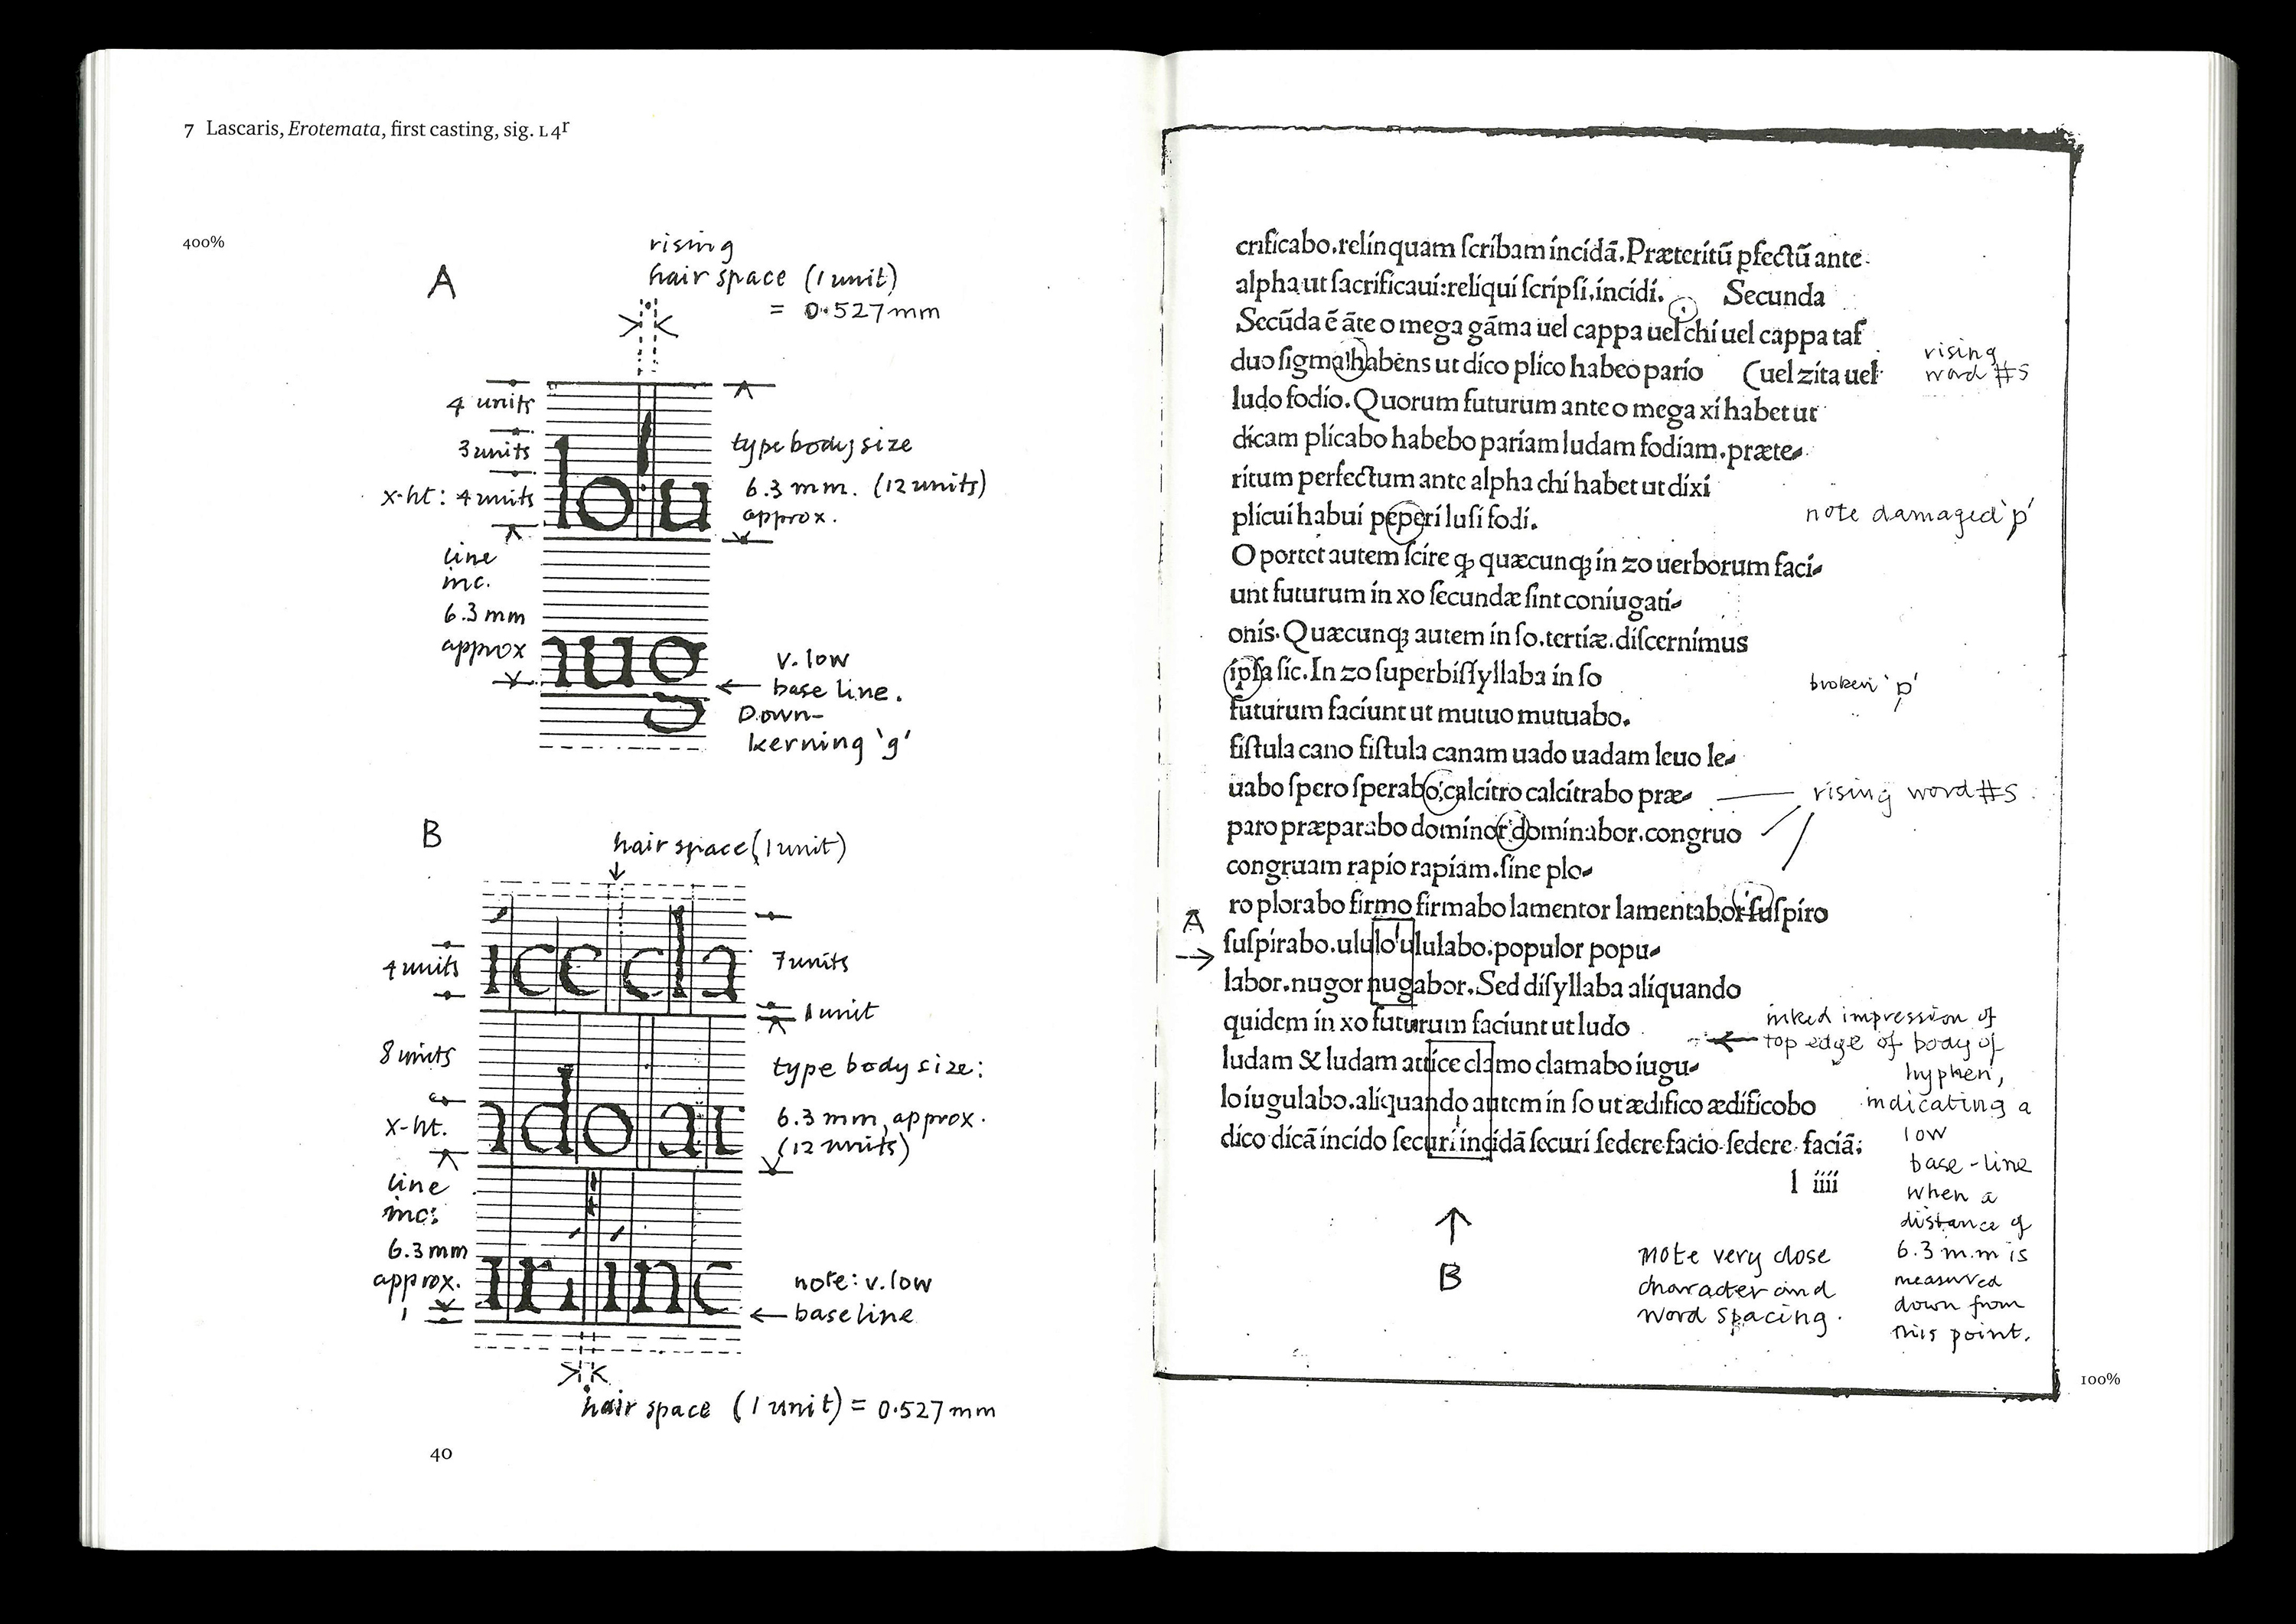 7 Lascaris, Erotemata, first casting, sig. L 4r
400%
A
rising
hair space (1 unit)
= 0.527 mm
4 units
3 units
x-ht: 4 units
lo'u
type body size
6.3 mm. (12 units)
approx.
line
inc.
6.3 mm
approx
nug
v. low
base line.
Down-
kerning 'g'
B
hair space (1 unit)
4 units
íce cla
7 units
1 unit
8 units
x-ht.
ndo au
type body size:
6.3 mm, approx.
(12 units)
line
inc:
6.3 mm
approx.
urí inc
note: v. low
baseline
hair space (1 unit) = 0.527 mm
40
crificabo.relínquam ſcríbam íncídā.Præterítū ꝑfectū ante
alpha ut ſacríficauí:relíquí ſcrípſí.íncídí. Secunda
Secūda ē āte o mega gāma uel cappa uel chí uel cappa taf
duo ſigma habens ut díco plíco habeo parío (uel zíta uel
ludo fodío.Quorum futurum ante o mega xí habet ut
dícam plícabo habebo paríam ludam fodíam.præte-
rítum perfectum ante alpha chí habet ut díxí
plícuí habuí peperí luſí fodí.
O portet autem ſcíre ꝙ quæcunqꝫ ín zo uerborum fací-
unt futurum ín xo ſecundæ ſint coníugatí-
onís.Quæcunqꝫ autem ín ſo.tertíæ.díſcernímus
ípſa ſíc.In zo ſuperbíſſyllaba ín ſo
futurum facíunt ut mutuo mutuabo.
fiſtula cano fiſtula canam uado uadam leuo le-
uabo ſpero ſperabo calcítro calcítrabo præ-
paro præparabo domínor domínabor.congruo
congruam rapío rapíam.ſine plo-
ro plorabo firmo firmabo lamentor lamentabor ſuſpíro
ſuſpírabo.ululo ululabo.populor popu-
labor.nugor nugabor.Sed díſyllaba alíquando
quídem ín xo futurum facíunt ut ludo
ludam & ludam attíce clamo clamabo íugu-
lo íugulabo.alíquando autem ín ſo ut ædífico ædíficobo
díco dícā íncído ſecurí íncídā ſecurí ſedere facío ſedere facíā:
l íííí
rising
word #s
note damaged 'p'
broken 'p'
rising word #s
A
inked impression of
top edge of body of
hyphen,
indicating a
low
base-line
when a
distance of
6.3 m.m is
measured
down from
this point.
B
note very close
character and
word spacing.
100%